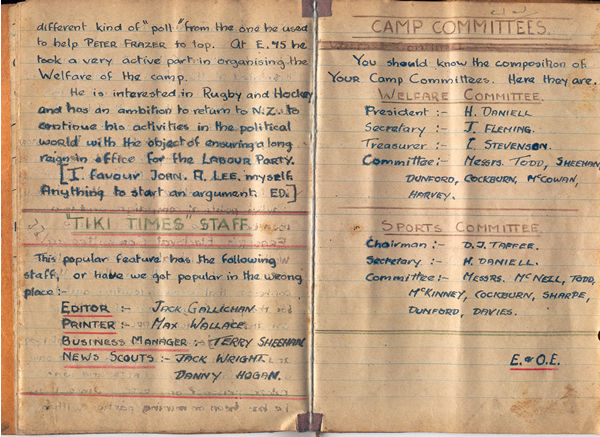 different kind of "poll" from the one he used
to help PETER FRAZER to top. At E.75 he
took a very active part in organising the
Welfare of the camp.
He is interested in Rugby and Hockey
and has an ambition to return to N.Z. to
continue his activities in the political
world with the object of ensuring a long
reign in office for the LABOUR PARTY.
[I favour JOHN. A. LEE. myself.
Anything to start an argument. ED.]
"TIKI TIMES" STAFF
This popular feature has the following
staff, or have we got popular in the wrong
place:-
EDITOR :- JACK GALLICHAN
PRINTER :- MAX WALLACE
BUSINESS MANAGER :- TERRY SHEEHAN
NEWS SCOUTS :- JACK WRIGHT.
DANNY HOGAN.
CAMP COMMITTEES.
You should know the composition of
YOUR Camp Committees. Here they are.
WELFARE COMMITTEE.
President :- H. DANIELL
Secretary :- J. FLEMING.
Treasurer :- STEVENSON.
Committee :- MESSRS. TODD, SHEEHAN,
DUNFORD, COCKBURN, McCOWAN,
HARVEY.
SPORTS COMMITTEE
Chairman :- D.J. TAFFEE.
Secretary :- H. DANIELL.
Committee :- MESSRS. McNEILL, TODD,
McKINNEY, COCKBURN, SHARPE,
DUNFORD, DAVIES.
E. & O.E.